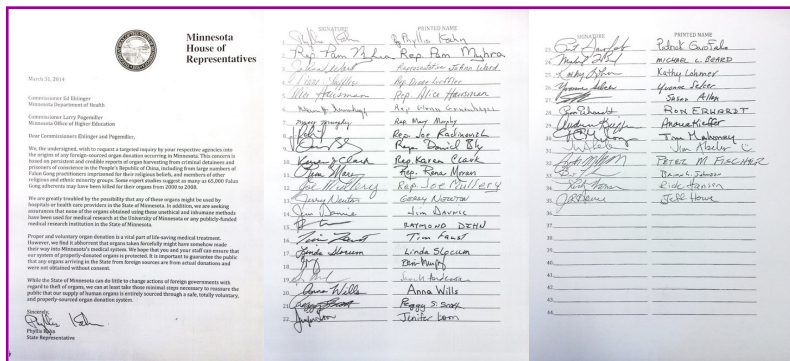 Minnesota
House of
Representatives
March 31, 2014
Commissioner Ed Ehlinger
Minnesota Department of Health
Commissioner Larry Pogemiller
Minnesota Office of Higher Education
Dear Commissioners Ehlinger and Pogemiller,
We, the undersigned, wish to request a targeted inquiry by your respective agencies into
the origins of any foreign-sourced organ donation occurring in Minnesota. This concern is
based on persistent and credible reports of organ harvesting from criminal detainees and
prisoners of conscience in the People's Republic of China, including from large numbers of
Falun Gong practitioners imprisoned for their religious beliefs, and members of other
religious and ethnic minority groups. Some expert studies suggest as many as 65,000 Falun
Gong adherents may have been killed for their organs from 2000 to 2008.
We are greatly troubled by the possibility that any of these organs might be used by
hospitals or health care providers in the State of Minnesota. In addition, we are seeking
assurances that none of the organs obtained using these unethical and inhumane methods
have been used for medical research at the University of Minnesota or any publicly-funded
medical research institution in the State of Minnesota.
Proper and voluntary organ donation is a vital part of life-saving medical treatment.
However, we find it abhorrent that organs taken forcefully might have somehow made
their way into Minnesota's medical system. We hope that you and your staff can ensure that
our system of properly-donated organs is protected. It is important to guarantee the public
that any organs arriving in the State from foreign sources are from actual donations and
were not obtained without consent.
While the State of Minnesota can do little to change actions of foreign governments with
regard to theft of organs, we can at least take those minimal steps necessary to reassure the
public that our supply of human organs is entirely sourced through a safe, totally voluntary,
and properly-sourced organ donation system.
Sincerely,
Phyllis Kahn
Phyllis Kahn
State Representative
SIGNATURE PRINTED NAME
1. Phyllis Kahn Phyllis Kahn
2. Rep Pam Myhra Rep. Pam Myhra
3. JoAnn Ward Representative JoAnn Ward
4. Diane Loeffler Rep. Diane Loeffler
5. Alice Hausman Rep. Alice Hausman
6.
7. Mary Murphy Rep. Mary Murphy
8. Rep. Joe Radinovich
9. Rep. Daniel Bly
10. Karen J Clark Rep. Karen Clark
11. Rena Moran Rep. Rena Moran
12. Joe Mullery Rep Joe Mullery
13. Jerry Newton Gerry Newton
14. Jim Davnie Jim Davnie
15. RAYMOND DEHN
16. Tim Faust Tim Faust
17. Linda Slocum Linda Slocum
18.
19. Sarah Anderson
20. Anna Wills Anna Wills
21. Peggy Scott Peggy S. Scott
22. Jenifer Loon
SIGNATURE PRINTED NAME
23. Patrick Garofalo
24. MICHAEL L. BEARD
25. Kathy Lohmer Kathy Lohmer
26. Yvonne Selcer Yvonne Selcer
27. Susan Allen
28. Ron Erhardt RON ERHARDT
29.
30. Tim Mahoney
31. Jim Abeler
32. PETER M FISCHER
33. Brian L. Johnson
34. Rick Hansen Rick Hansen
35. Jeff Howe
37.
38.
39.
40.
41.
42.
43.
44.